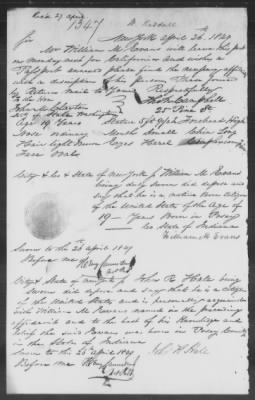 Recd 27 April
1347
New York April 26. 1849
Sir
Mr William M Evans will leave this port
on Monday next for California and wishes a
Passport enclosed please find the necessary affidavit
with a description
by Return mail to
Yours Respectfully
To the Hon
25 Pine St
John M Clayton
Secy of State Washington
Age 19 Years Stature 5 ft Forehead High
Nose ordinary Mouth Small Chin Long
Hair light Brown Eyes Hazel
Face Oval
City & Co & State of New York ss William M. Evans
being duly sworn did depose and
say that he is a native born Citizen
of the United States of the age of
19 — Years Born in
Co State of Indiana
William M Evans
Sworn to the 26 April 1849
Before me
City & State of New York ss John H Hale being
Sworn did depose and say that he is a Citizen
of the United States and is personally acquainted
with William M Evans named in the preceding
affidavit and to the best of his knowledge and
belief the said Evans was born in
in the State of Indiana
Sworn to the 26 April 1849
Before me
John H Hale